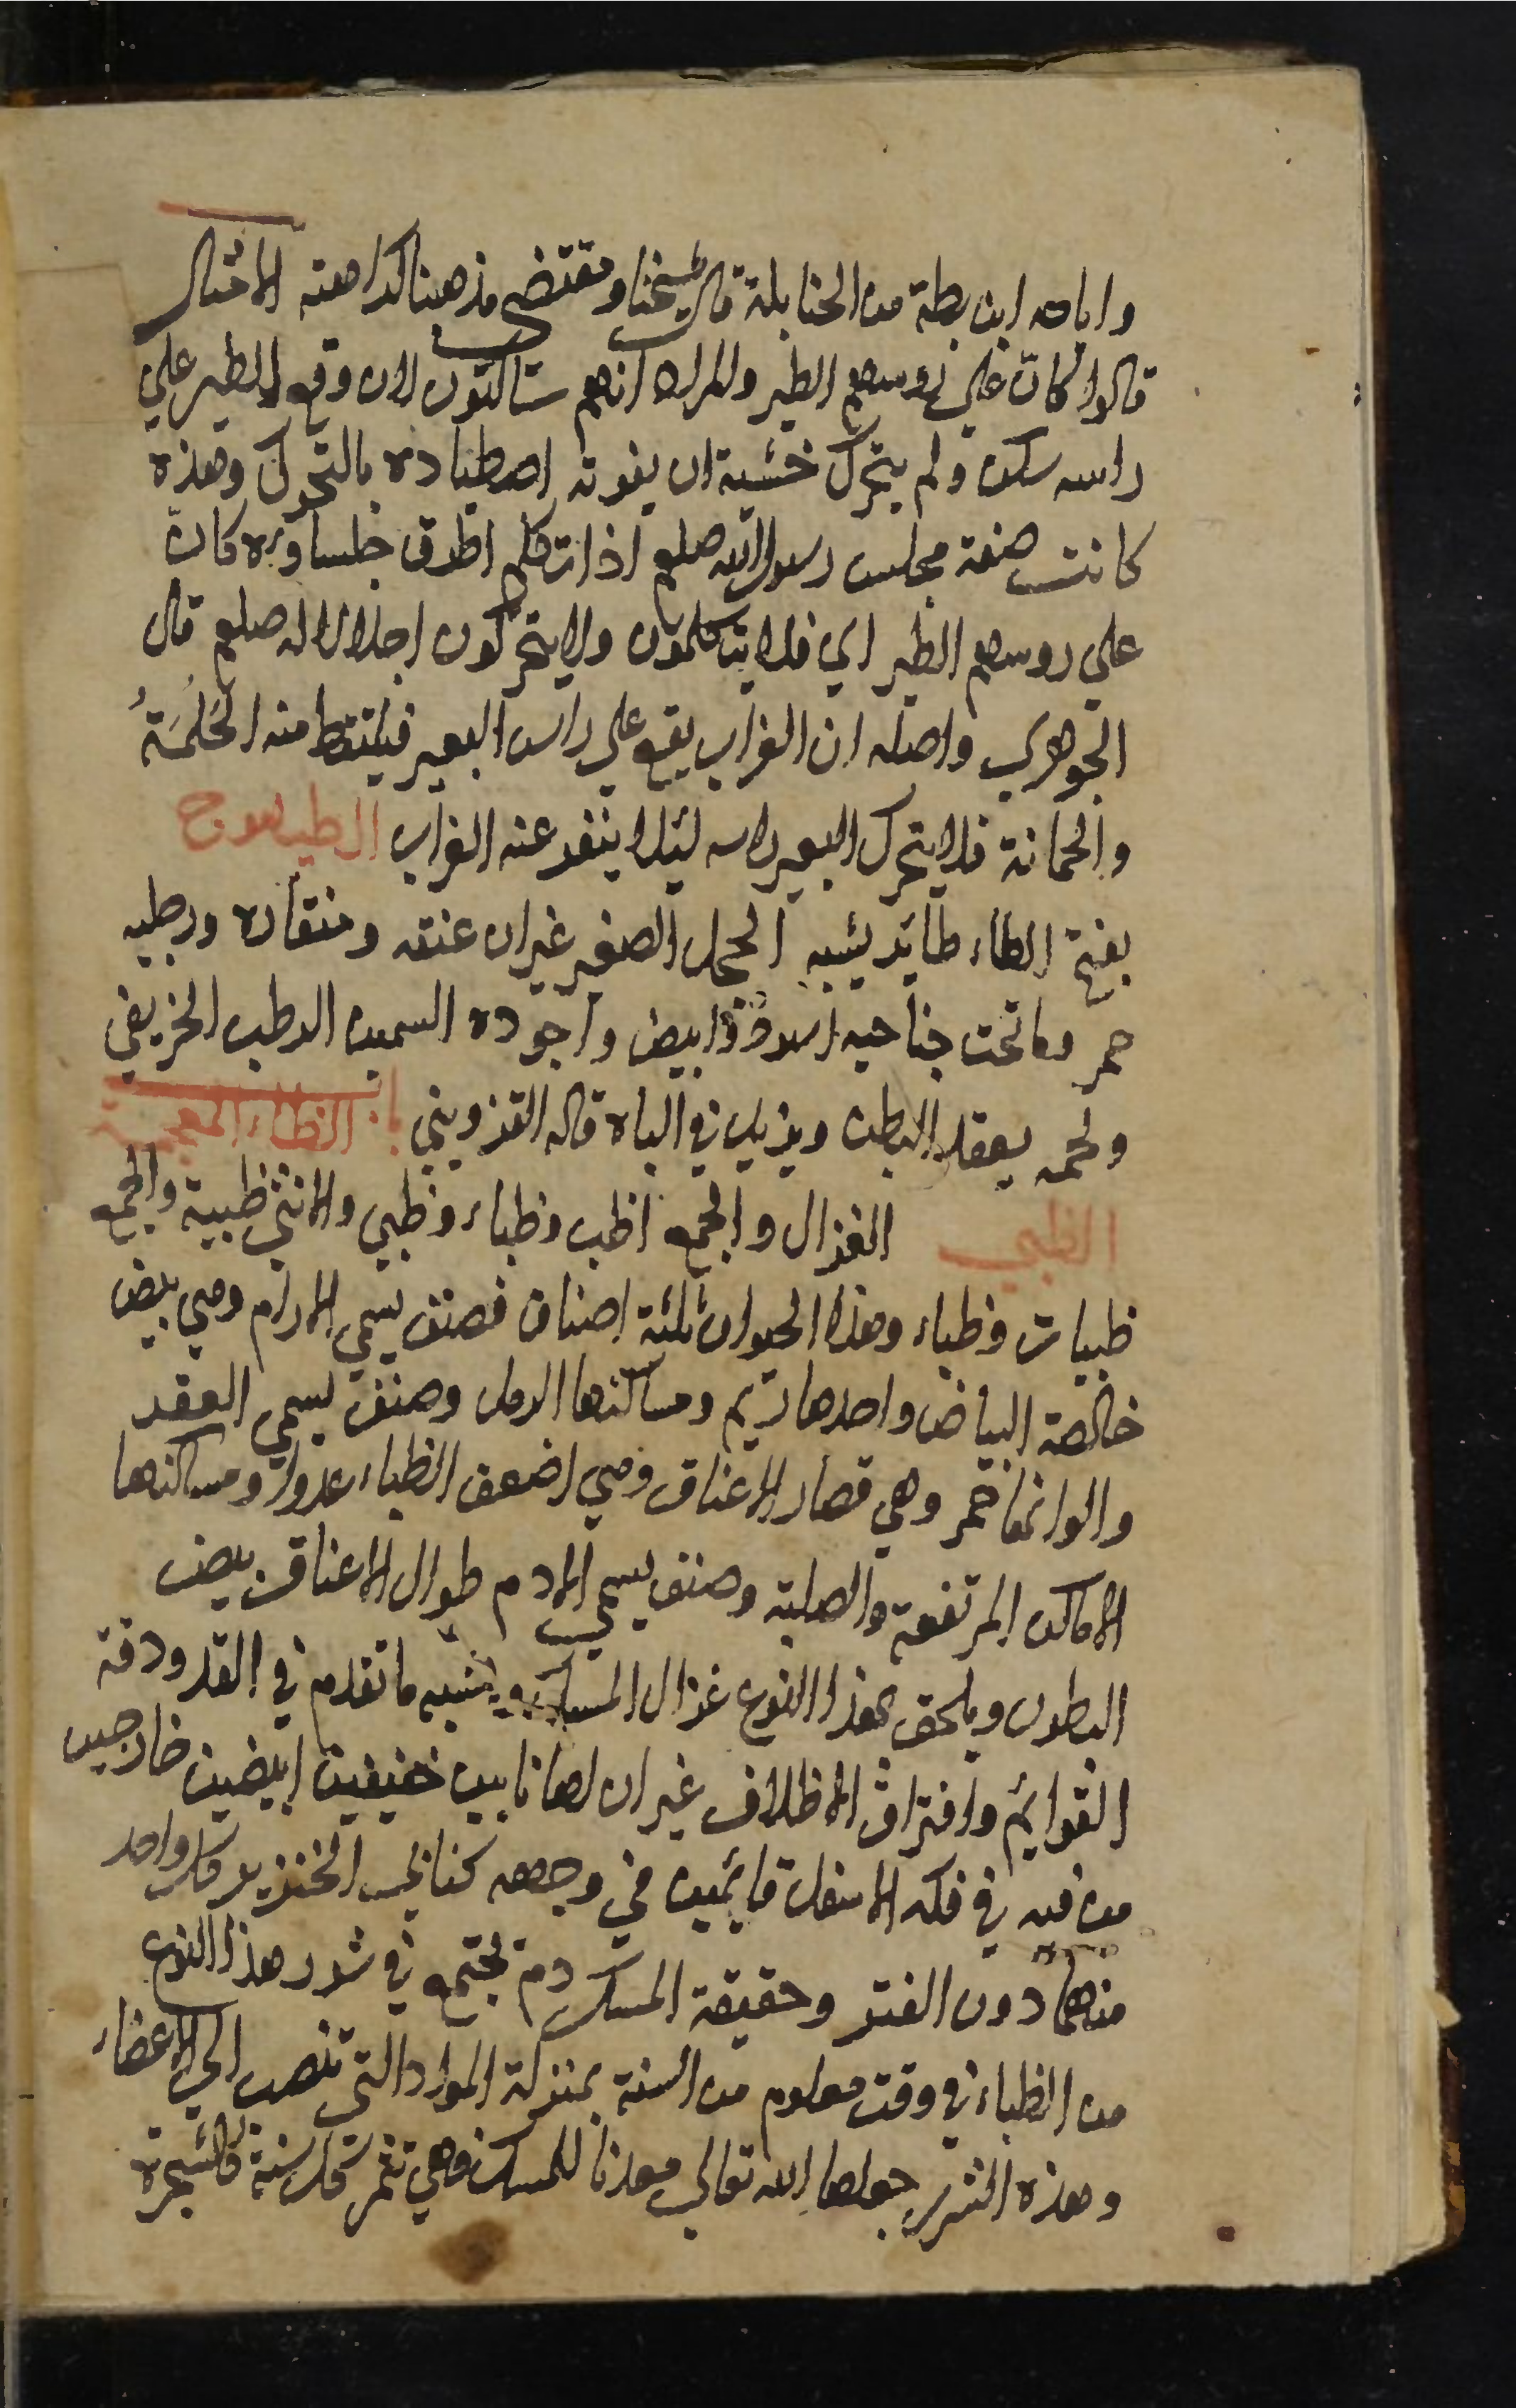 واباحه ابن بطة من الحنابلة قال شيخنا ومقتضى مذهبنا كراهته الامثال
قالوا كان على روسهم الطير والمراد انهم ساكتون لان وقع الطير علي
راسه سكن ولم يتحرك خشية ان يفوته اصطياده بالتحرك وهذه
كانت صفة مجلس رسول الله صلعم اذا تكلم اطرق جلساوه كان
علي روسهم الطير اي فلا يتكلمون ولا يتحركون اجلالا له صلعم قال
الجوهري واصله ان الغراب يقع علي راس البعير فيلتقط منه الحَلَمَةُ
والحمانة فلا يتحرك البعير راسه ليلا ينفر عنه الغراب الطيهوج
بفتح الطاء طائر يشبه الحجل الصغير غير ان عنقه ومنقاره ورجليه
حمر وما تحت جناحيه اسود وابيض واجوده السمين الرطب الخريفي
ولحمه يعقل البطن ويزيد في الباه قاله القزويني باب الظاء المعجمة
الظبي الغزال والجمع اظب وظباء وظبي والانثى ظبية والجمع
ظبيات وظباء وهذا الحيوان ثلثة اصناف فصنف يسمي الارام وهي بيض
خالصة البياض واحدها ريم ومساكنها الرمل وصنف يسمي العفر
والوانها حمر وهي قصار الاعناق وهي اضعف الظباء عدوا ومساكنها
الاماكن المرتفعة والصلبة وصنف يسمي الادم طوال الاعناق بيض
البطون ويلحق بهذا النوع غزال المسك ويشبه ما تقدم في القد ودقة
القوائم وافتراق الاظلاف غير ان لها نابين خفيفين ابيضين خارجين
من فيه في فكه الاسفل قايمين في وجهه كنابي الخنزير كل واحد
منهما دون الفتر وحقيقة المسك دم يجتمع في سرر هذا النوع
من الظباء في وقت معلوم من السنة بمنزلة المواد التي تنصب الي الاعضاء
وهذه السرر جعلها الله تعالي معدنا للمسك فهي تثمر كل سنة كالشجرة